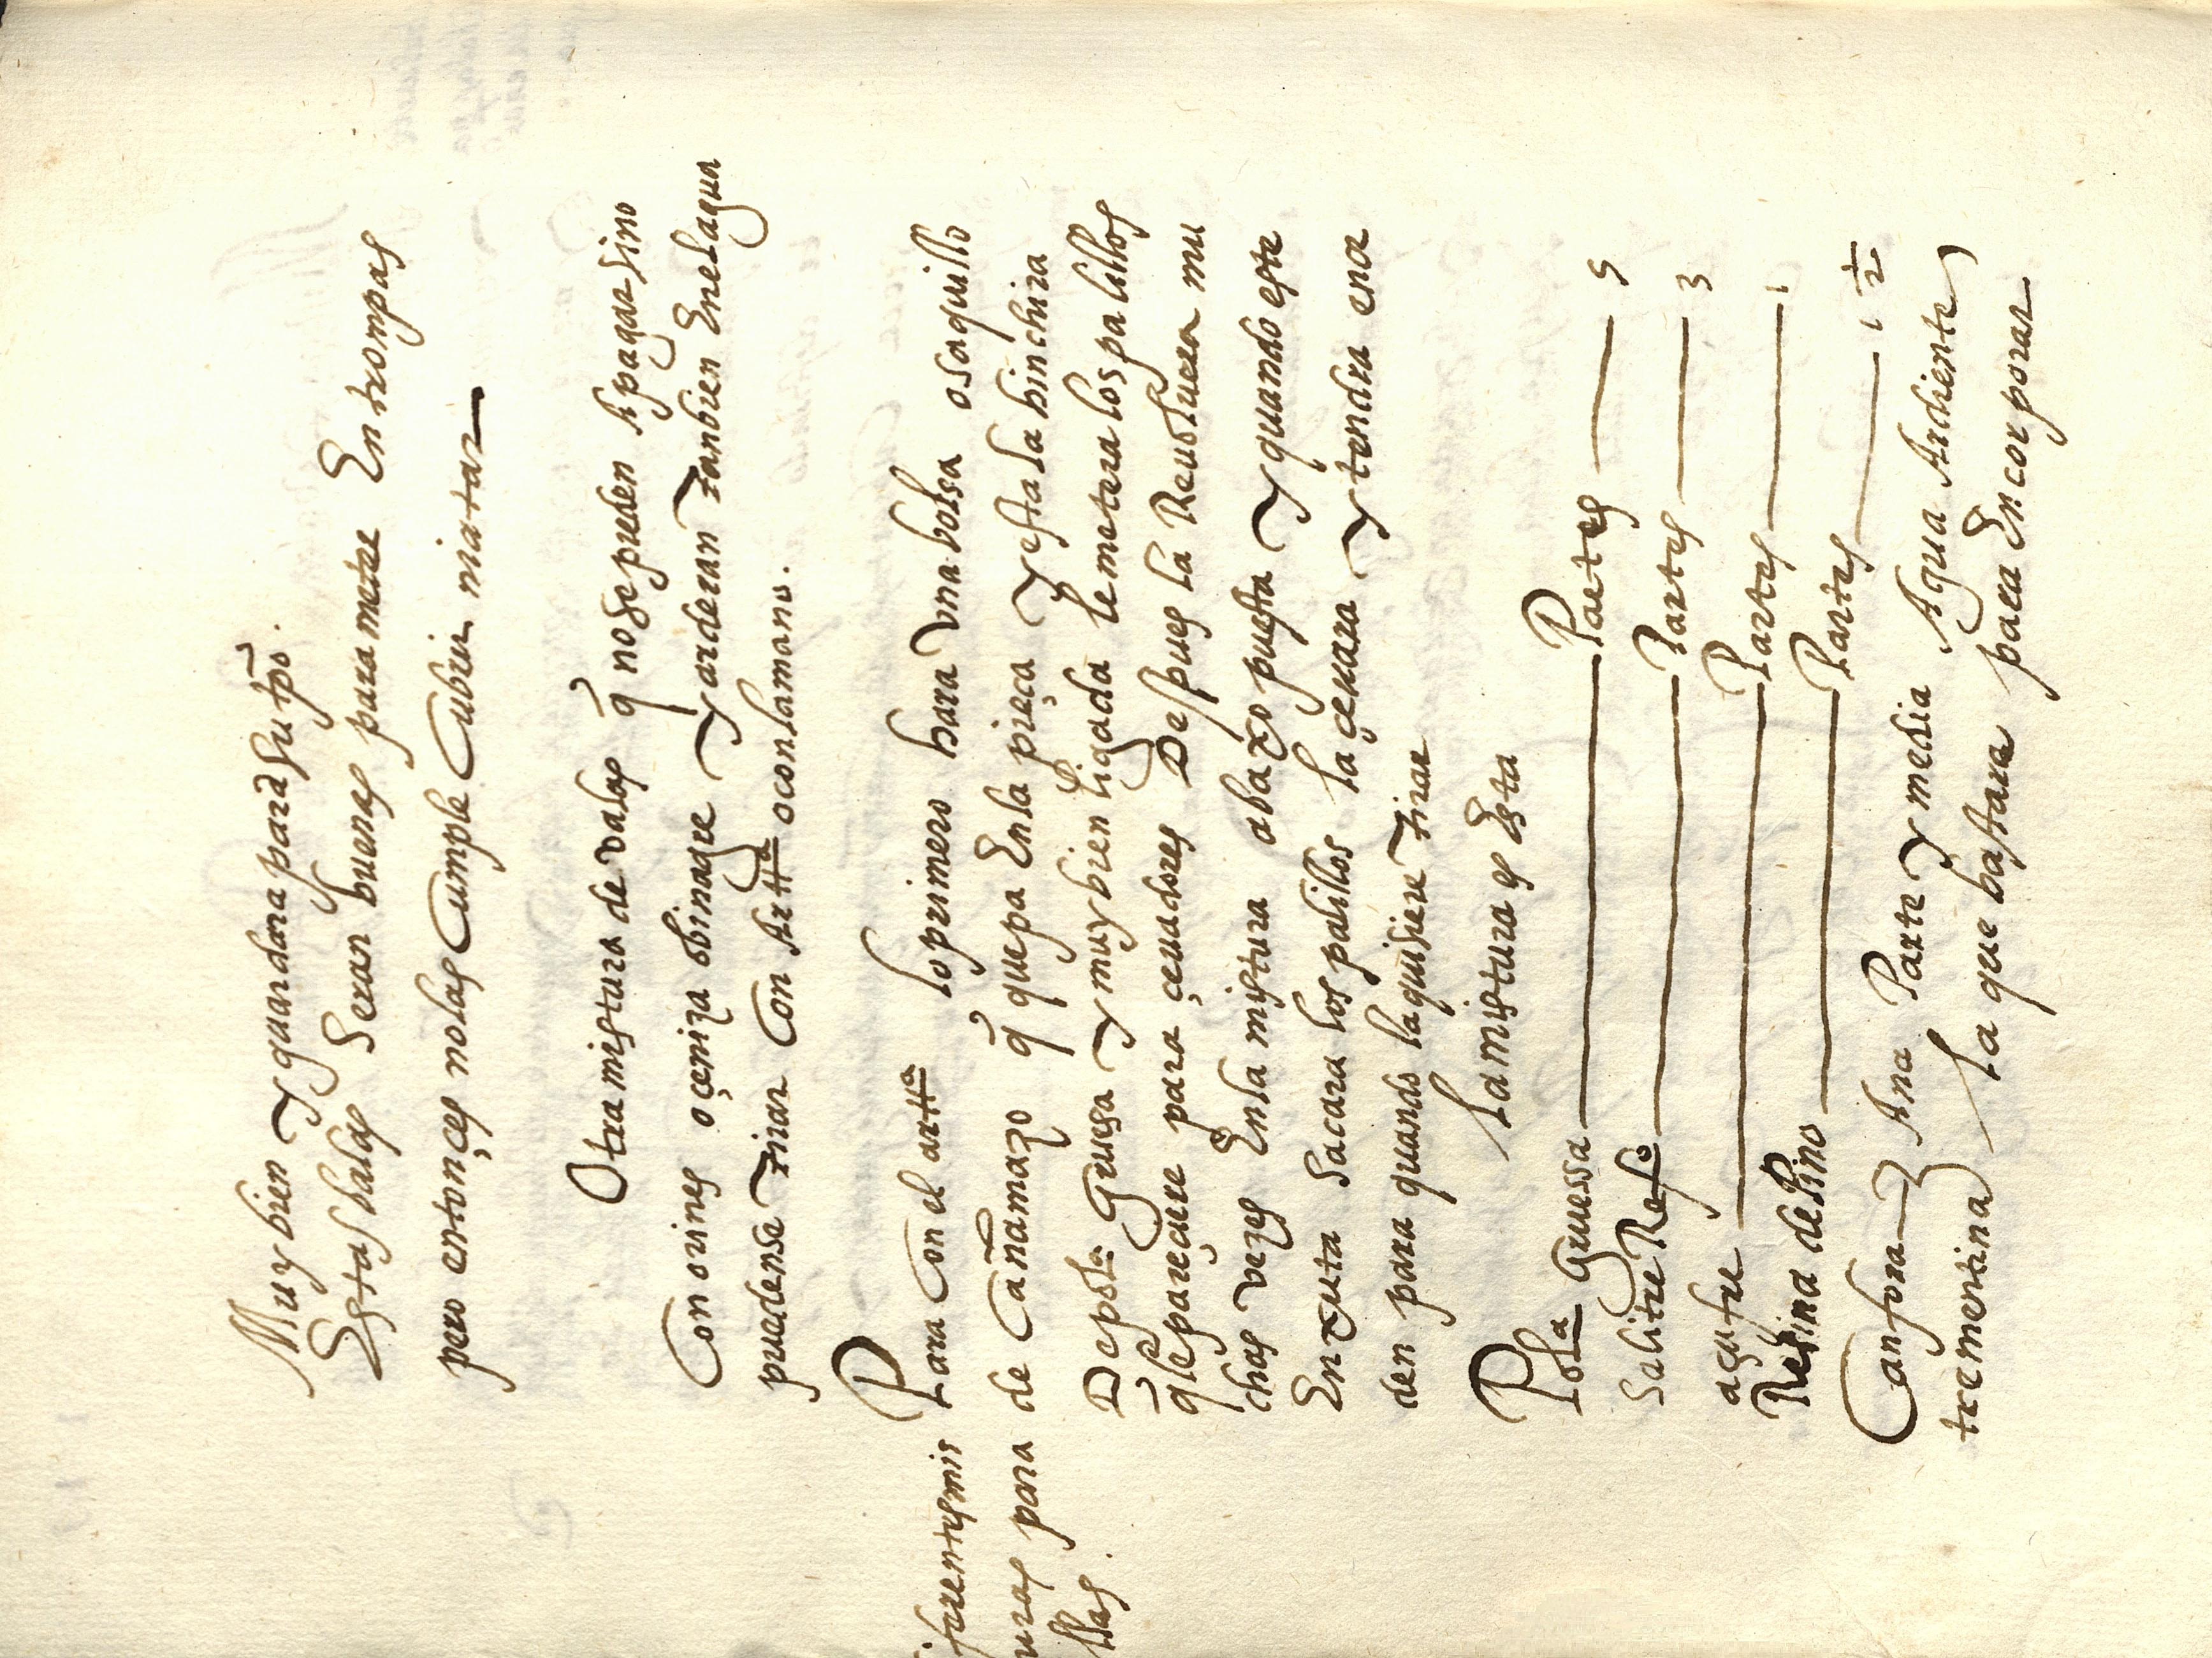 Muy bien y guardara para su tpõ.
Estas balas seran buenas para metre En trompas
pero entonçes no las Cumple Cubrir ni atar
Otra mistura de valas q̃ no se pueden Apagar sino
Con orines o çeniza o binagre y arderan tanbien En el agua
puedense tirar Con Artᵃ o con la mano.
Para Con el artᵃ lo primero hara vna bolsa o saquillo
de Cañamazo q̃ quepa En la pieça y esta la hinchira
De polᵃ Gruesa y muy bien ligada le metera los palillos
q̃ le pareçiere para çeuadores Despues la Reuoluera mu
chas vezes En la mistura abaxo puesta y quando este
Enxuta sacara los palillos la çeuara y tendra en a
den para quando la quisiere tirar
la mistura es Esta
ifirentes mis
uras para
llas.
Polᵃ Gruessa Partes 5
Salitre Refº Partes 3
açufre Partes 1
Resina de Pino Partes 1 ½
Canfora Ana Parte y media Agua Ardiente
trementina la que bastare para Encorporar